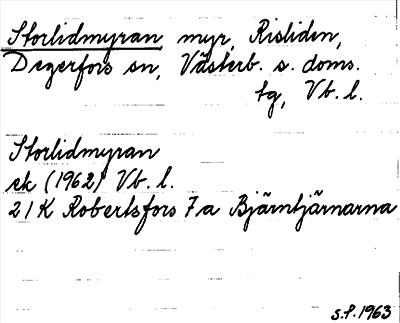 Storlidmyran, myr, Risliden,
Degerfors sn, Västerb. s. doms.
tg, Vb. l.
Storlidmyran
ek (1962) Vb. l.
21 K Robertsfors 7a Bjärntjärnarna
s.f. 1963